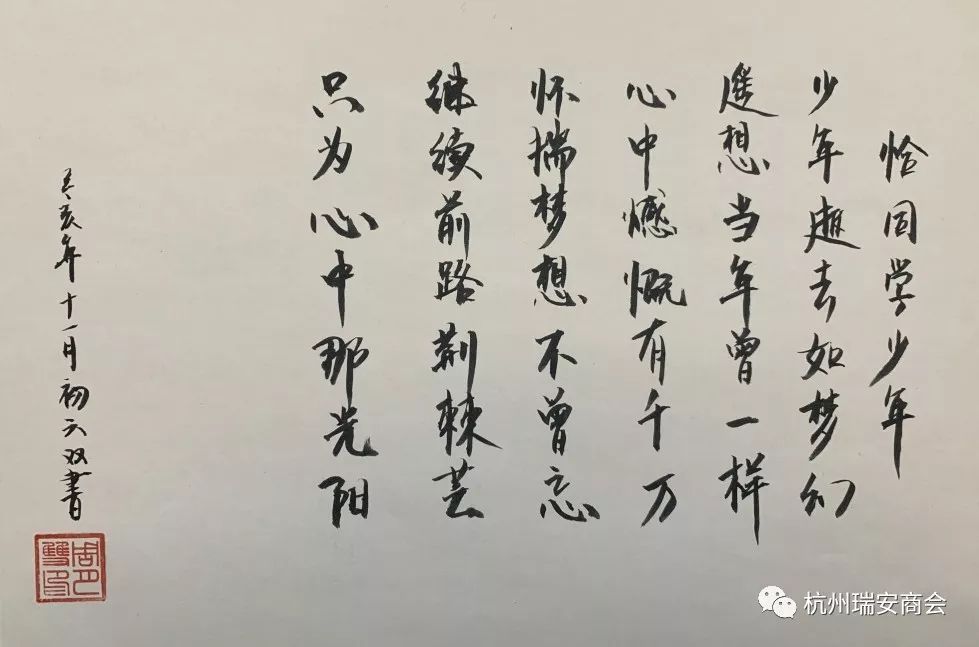 恰同学少年
少年去如梦幻
遥想当年曾一样
心中憾慨有千万
怀揣梦想不曾忘
继续前路荆棘芸
只为心中那光阳
亥年十一月初六双書
杭州瑞安商会